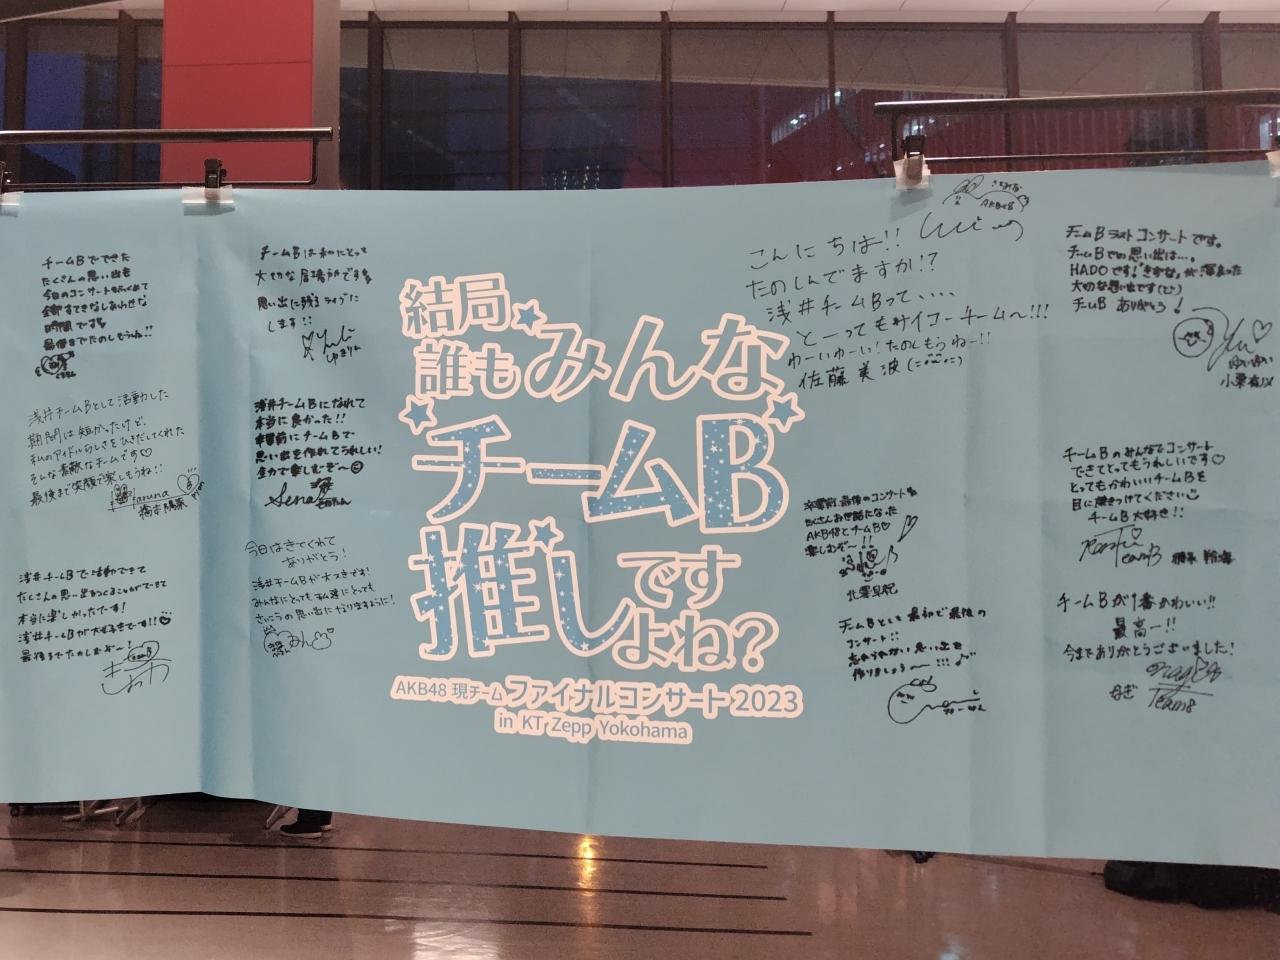 チームBでできた
たくさんの思い出も
今日のコンサートもふくめて
全部すてきなしあわせな
時間です
最後までたのしもうね!!
浅井チームBとして活動した
期間は短かったけど、
私のアイドルらしさをひきだしてくれた
そんな素敵なチームです♡
最後まで笑顔で楽しもうね!!
Haruna
橋本陽菜
浅井チームBで活動できて
たくさんの思い出をつくることができて
本当に楽しかったです!
浅井チームBが大好きです!!♡
最後までたのしむぞ〜!
チームBは私にとって
大切な居場所です
思い出に残るライブに
します!!
ゆきりん
浅井チームBになれて
本当に良かった!!
卒業前にチームBで
思い出を作れてうれしい!
全力で楽しむぞ〜
Sena
今日はきてくれて
ありがとう!
浅井チームBが大すきです!
みんなにとっても私達にとっても
さいこうの思い出になりますように!
結局
誰もみんな
チームB
推しです
よね?
AKB48 現チーム ファイナルコンサート 2023
in KT Zepp Yokohama
AKB48
こんにちは!!
たのしんでますか!?
浅井チームBって、、、、
とーってもサイコーチーム〜!!!
わーいわーい!たのしもうねー!!
佐藤美波
卒業前、最後のコンサート
たくさんお世話になった
AKB48とチームB♡
楽しむぞ〜!!
北澤早紀
チームBとして最初で最後の
コンサート!!
忘れられない思い出を
作りましょう〜!!!
チームBラストコンサートです。
チームBでの思い出は…。
HADOです!きずなが深まった
大切な思い出です
チームB ありがとう!
ゆいゆい
小栗有以
チームBのみんなでコンサート
できてとってもうれしいです♡
とってもかわいいチームBを
目に焼きつけてください
チームB大好き!!
TeamB
チームBが1番かわいい!!
最高ー!!
今までありがとうございました!
なぎ
Team8